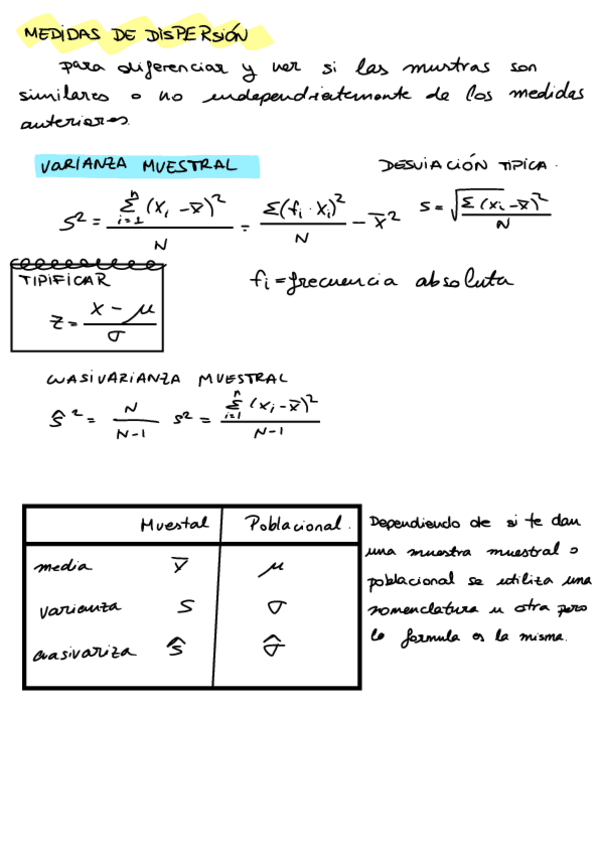 MEDIDAS DE DISPERSIÓN
para diferenciar y ver si las muestras son
similares o no independrietemente de los medidas
anteriores.
VARIANZA MUESTRAL
DESVIACIÓN TIPICA.
S² = Σⁿᵢ₌₁ (xᵢ - x̄)² / N = Σ(fᵢ · xᵢ)² / N - x̄²
S = √(Σ (xᵢ - x̄)² / N)
TIPIFICAR
Z = x - μ / σ
fᵢ = frecuencia absoluta
CUASIVARIANZA MUESTRAL
Ŝ² = N / N-1 S² = Σⁿᵢ₌₁ (xᵢ - x̄)² / N-1
Muestal Poblacional.
media x̄ μ
varianza S σ
cuasivariza ŝ σ̂
Dependiendo de si te dan
una muestra muestral o
poblacional se utiliza una
nomenclatura u otra pero
la formula es la misma.